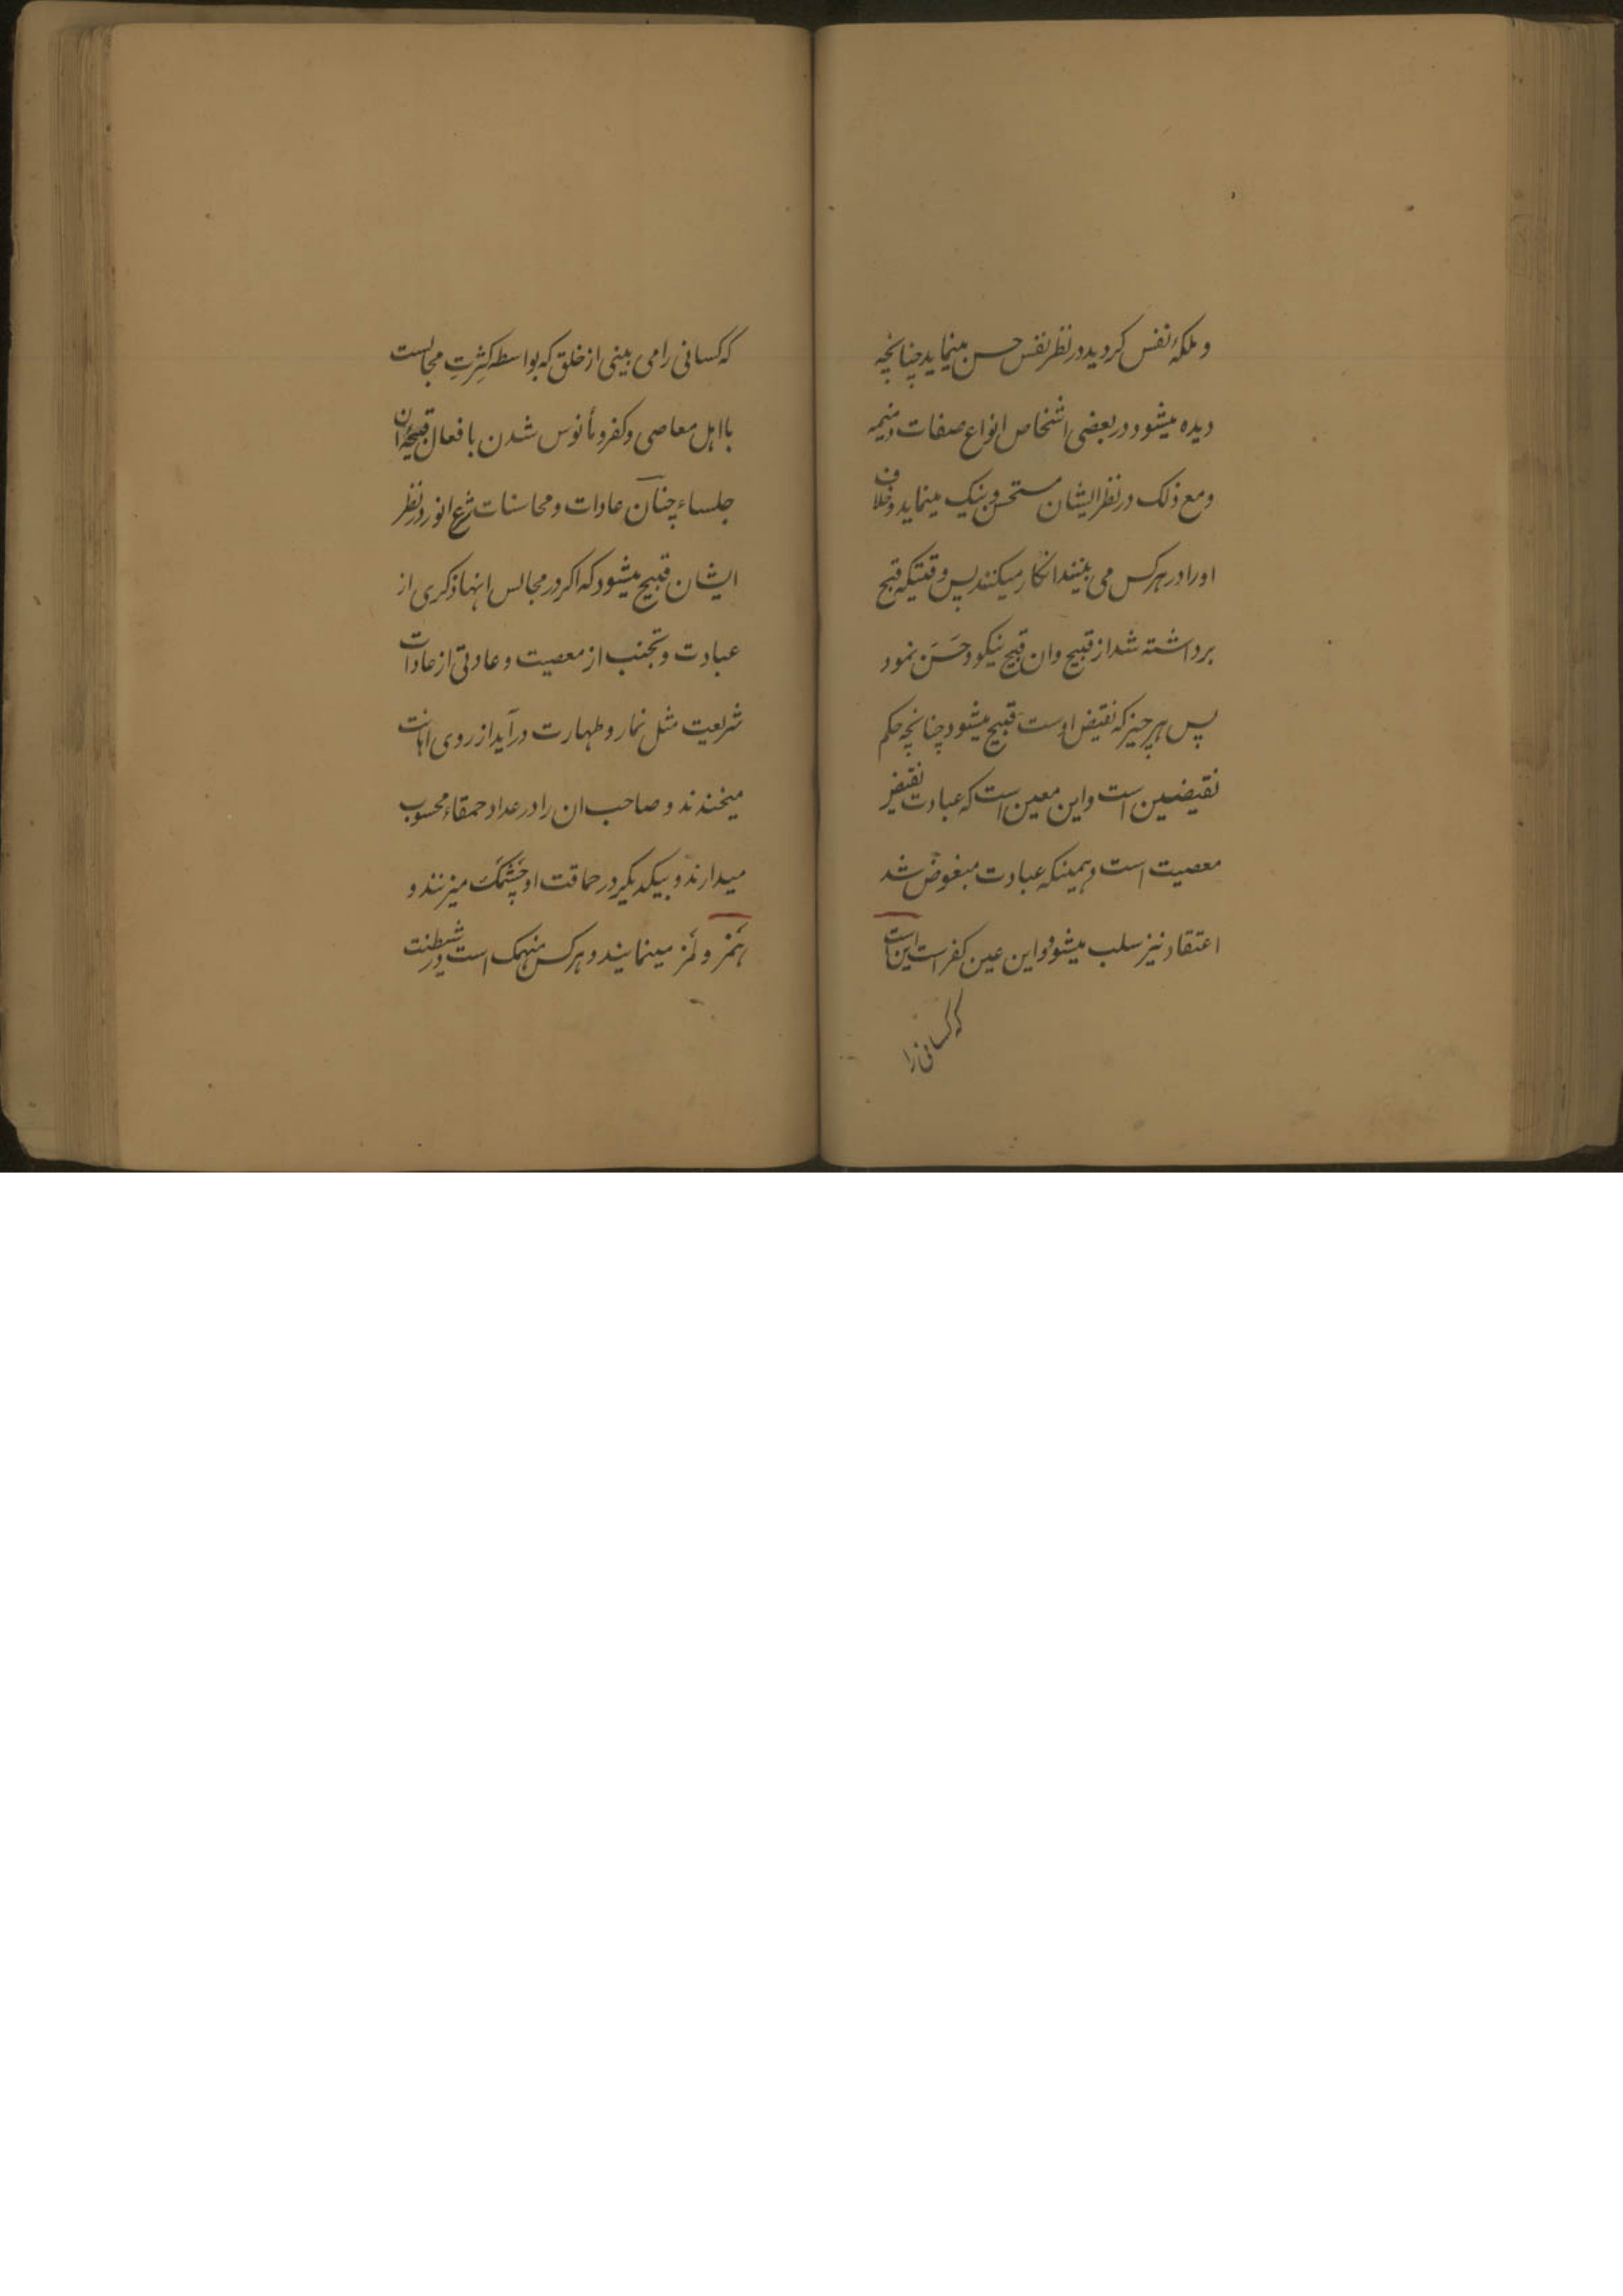 و ملکهٔ نفس کردید در نظر نفس حسن مینماید چنانچه
دیده میشود در بعضی اشخاص انواع صفات ذمیمه
و مع ذلک در نظر ایشان مستحسن و نیک مینماید و خلاف
او را در هر کس می بینند انکار میکنند پس وقتیکه قبح
برداشته شد از قبیح و ان قبیح نیکو و حَسَن نمود
پس هر چیز که نقیض اوست قبیح میشود چنانچه حکم
نقیضین است و این معین است که عبادت نقیض
معصیت است و همینکه عبادت مبغوض شد
اعتقاد نیز سلب میشود و این عین کفر است این است
که کسانی را
که کسانی را می بینی از خلق که بواسطه کثرتِ مجالست
با اهل معاصی و کفر و مأنوس شدن با فعال قبیحهٔ ان
جلساء چنان عادات و محاسنات شرع انور در نظر
ایشان قبیح میشود که اکر در مجالس انها ذکری از
عبادت و تجنب از معصیت و عادتی از عادات
شریعت مثل نماز و طهارت در آید از روی اهانت
میخندند و صاحب ان را در عداد حمقاء محسوب
میدارند و بیکدیکر در حماقت او چَشمَک میزنند و
هَمز و لَمز مینمایند و هر کس منهمک است در شیطنت